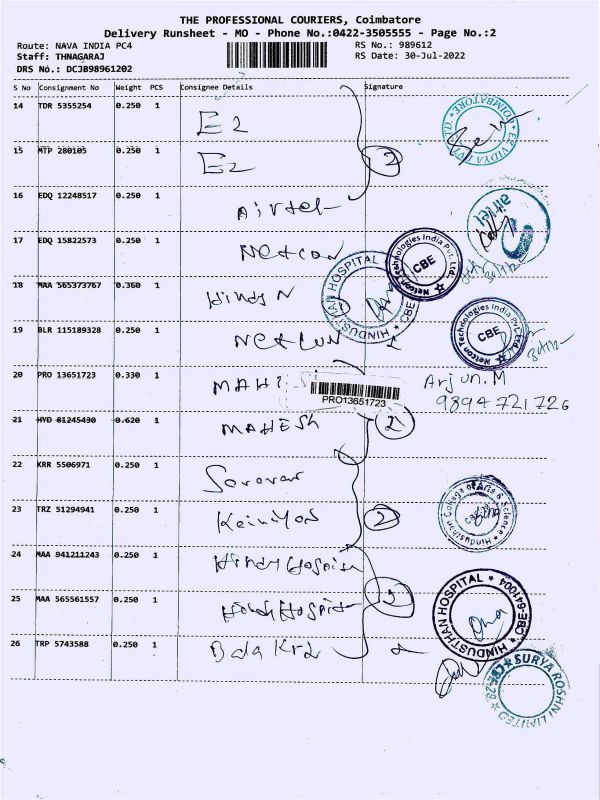 THE PROFESSIONAL COURIERS, Coimbatore
Delivery Runsheet - MO - Phone No.:0422-3505555 - Page No.:2
Route: NAVA INDIA PC4 RS No.: 989612
Staff: THNAGARAJ RS Date: 30-Jul-2022
DRS No.: DCJB98961202
S No Consignment No Weight PCS Consignee Details Signature
14 TDR 5355254 0.250 1 E2
15 MTP 280105 0.250 1 E2 2
16 EDQ 12248517 0.250 1 Airtel
airtel
17 EDQ 15822573 0.250 1 Netcon
Netcon Technologies India Pvt. Ltd. CBE
18 MAA 565373767 0.360 1
HINDUSTHAN HOSPITAL CBE
19 BLR 115189328 0.250 1 Netcon
Netcon Technologies India Pvt. Ltd. CBE
20 PRO 13651723 0.330 1 Arjun.M
PRO13651723
9894721726
21 HYD 81245430 0.620 1 MAHESH 2
22 KRR 5506971 0.250 1
23 TRZ 51294941 0.250 1 2
Hindusthan College of Arts & Science
24 MAA 941211243 0.250 1
25 MAA 565561557 0.250 1
HINDUSTHAN HOSPITAL CBE-641004
26 TRP 5743588 0.250 1
SURYA ROSHNI LIMITED